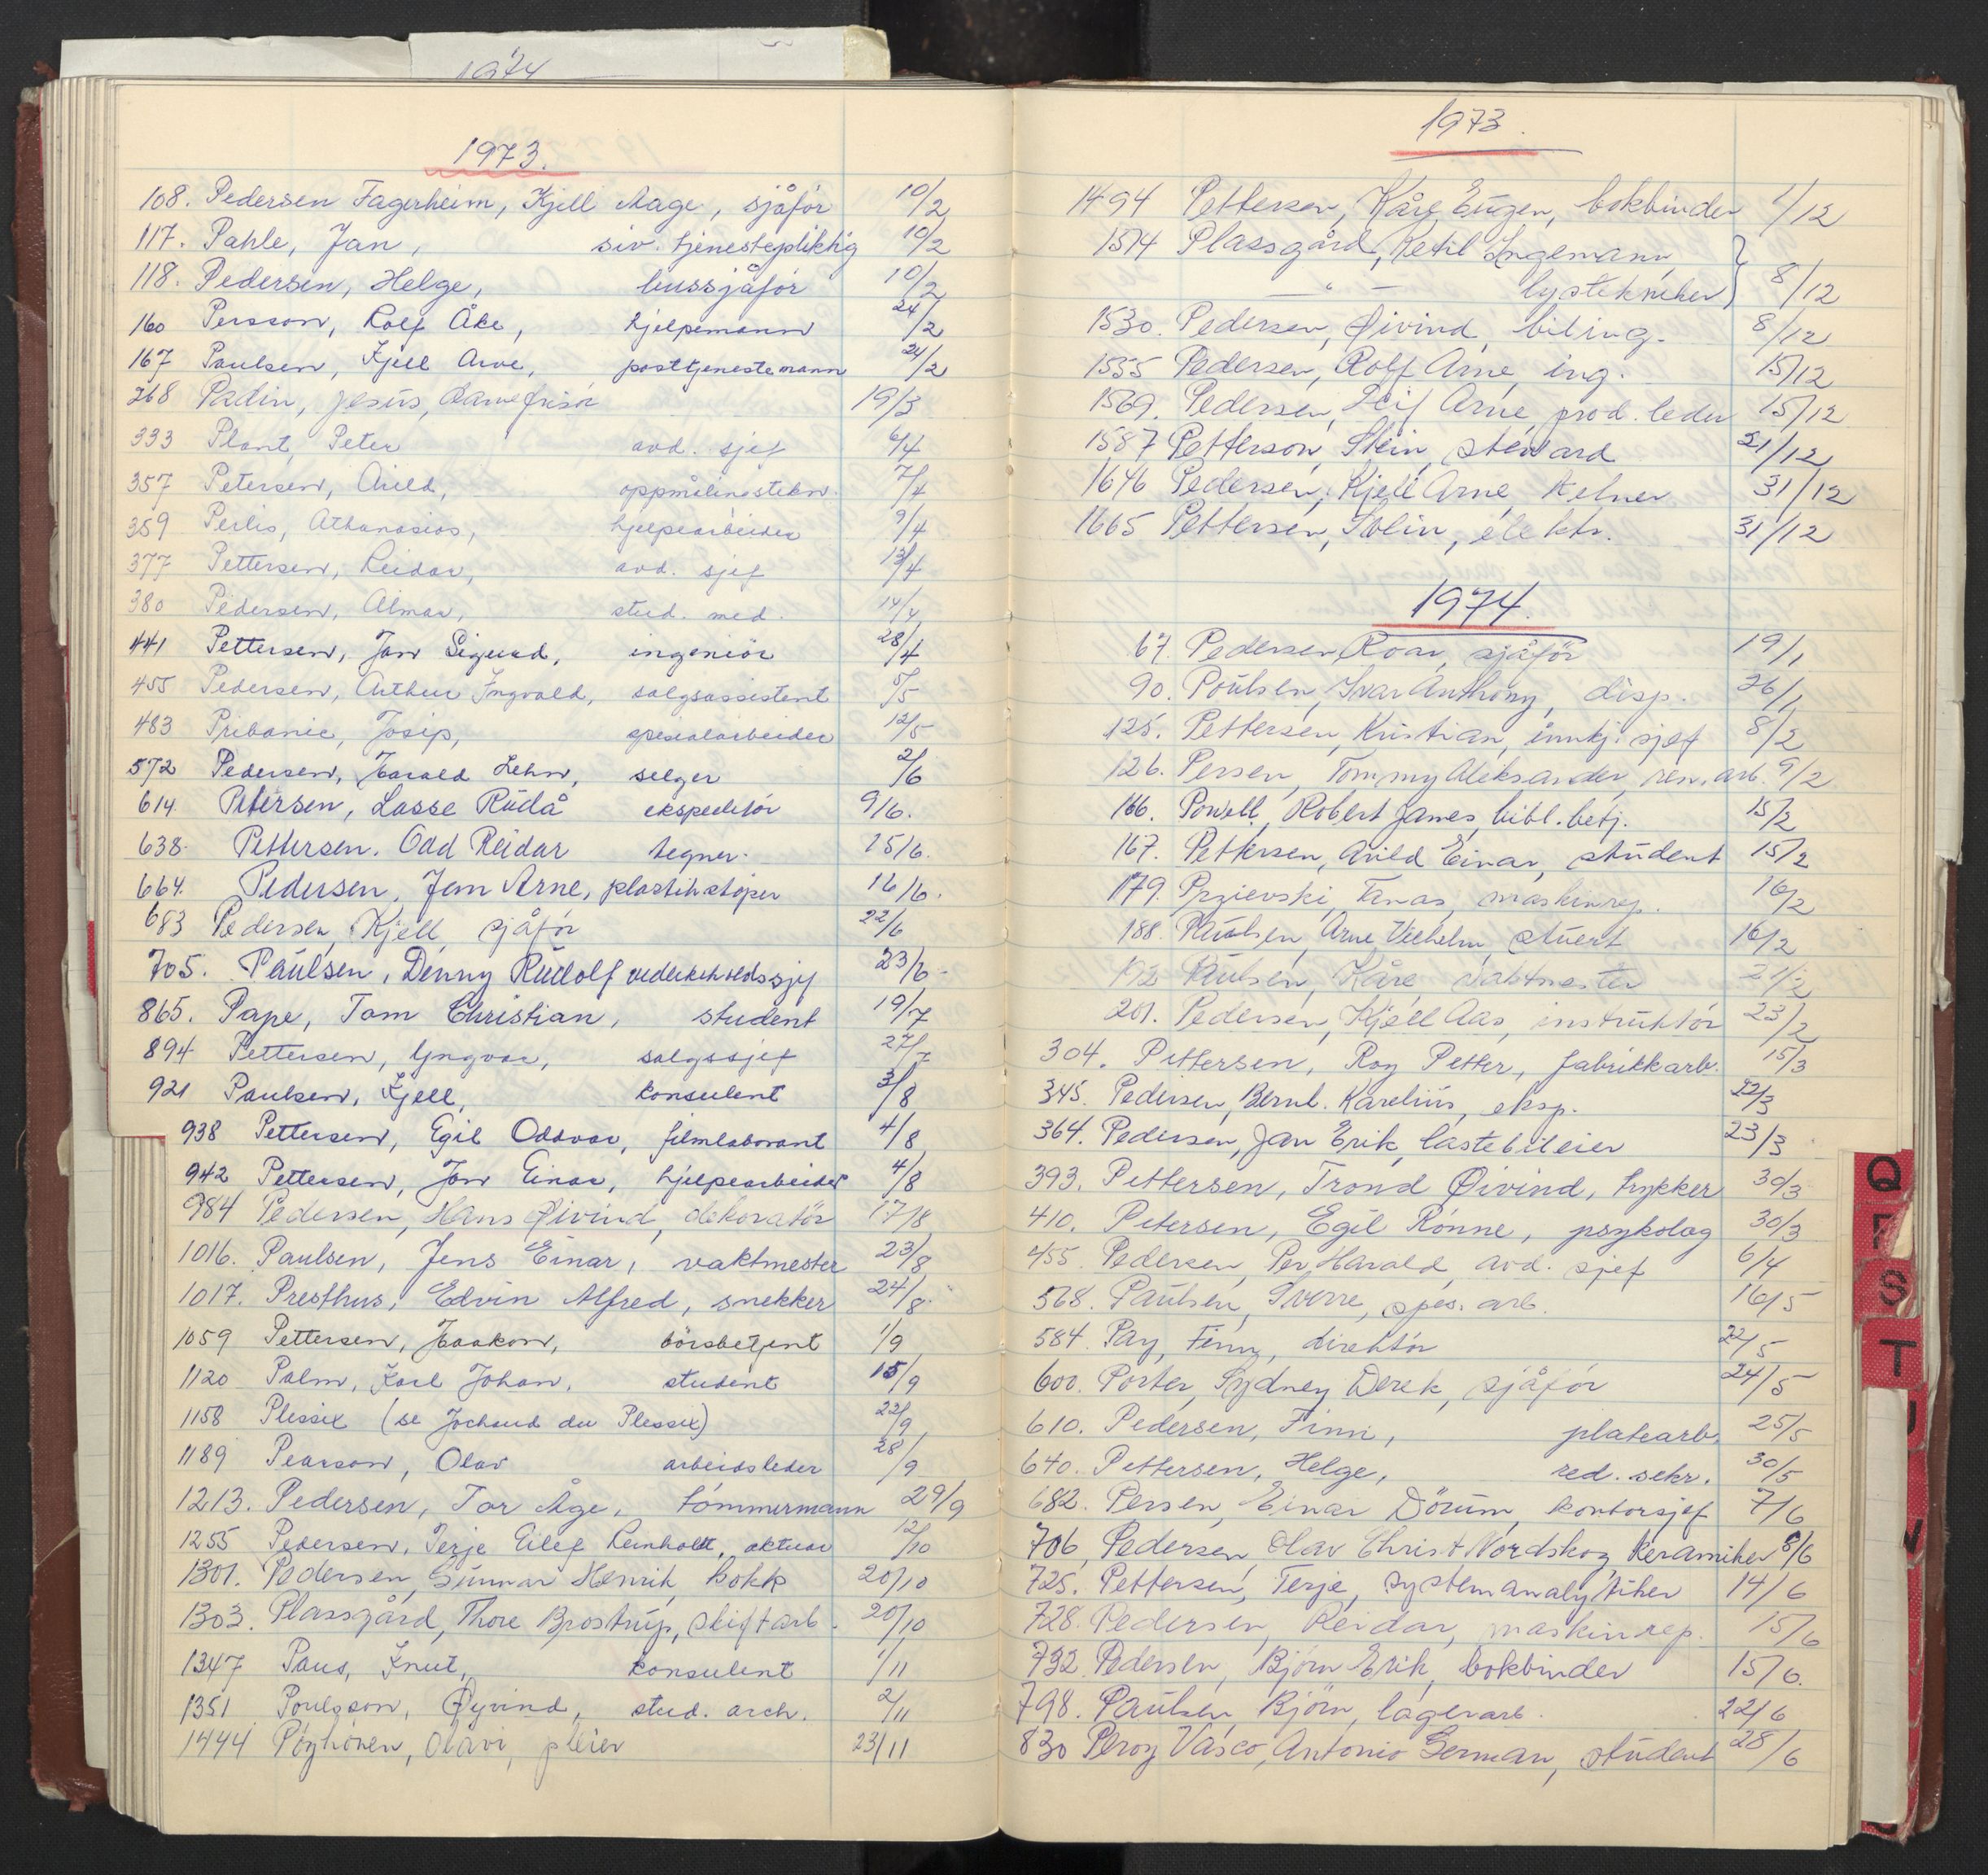 1974
1973.
108. Pedersen Fagerheim, Kjell Aage, sjåfør 10/2
117. Pahle, Jan, siv. tjenestepliktig 10/2
118. Pedersen, Helge, bussjåfør 10/2
160 Persson, Rolf Åke, hjelpemann 24/2
167 Paulsen, Kjell Arve, posttjenestemann 24/2
268 Padin, Jesus, Damefrisør 19/3
333 Plant, Peter avd. sjef 6/4
357 Petersen, Arild, oppmålingstekn. 7/4
359 Perlis, Athanasios, hjelpearbeider 9/4
377 Pettersen, Reidar, avd. sjef 13/4
380 Pedersen, Almar, stud. med. 14/4
441 Pettersen, Jan Sigurd, ingeniør 28/4
455 Pedersen, Arthur Ingvald, salgsassistent 5/5
483 Pribanic, Josip, spesialarbeider 12/5
572 Pedersen, Harald Lehn, selger 2/6
614. Petersen, Lasse Rudå ekspeditør 9/6.
638. Pettersen. Odd Reidar tegner. 15/6.
664. Pedersen, Jan Arne, plastikstøper 16/6.
683 Pedersen, Kjell, sjåfør 22/6
705. Paulsen, Denny Rudolf vedlikeholdssjef 23/6-
865. Pape, Tom Christian, student 19/7
894 Pettersen, Yngvar, salgssjef 27/7
921 Paulsen, Kjell, konsulent 3/8
938 Pettersen, Egil Oddvar, filmlaborant 4/8
942 Pettersen, Jan Einar, hjelpearbeider 4/8
984 Pedersen, Hans Øivind, dekoratør 17/8
1016. Paulsen, Jens Einar, vaktmester 23/8
1017. Presthus, Edvin Alfred, snekker 24/8.
1059 Pettersen, Haakon, børsbetjent 1/9
1120 Palm, Karl Johan, student 15/9
1158 Plessix (se Jochaud du Plessix) 22/9
1189 Pearson, Olav arbeidsleder 28/9
1213. Pedersen, Tor Åge, tømmermann 29/9
1255 Pedersen, Terje Eilef Reinholdt, aktuar 12/10
1301. Pedersen, Gunnar Henrik, kokk 20/10
1303. Plassgård, Thore Brostrup, skiftarb. 20/10
1347 Paus, Knut, konsulent 1/11
1351 Poulsson, Øyvind, stud. arch. 2/11
1444 Pöyhönen, Olavi, pleier 23/11
1973.
1494 Pettersen, Kåre Eugen, bokbinder 1/12
1514 Plassgård, Ketil Ingemann,
— " — lystekniker } 8/12
1530. Pedersen, Øivind, biling. 8/12
1555 Pedersen, Rolf Arne, ing. 15/12
1569. Pedersen, Leif Arne, prod. leder 15/12
1587 Petterson, Stein, steward 21/12
1646 Pedersen, Kjell Arne, Kelner 31/12
1665 Pettersen, Solin, elektr. 31/12
1974.
67. Pedersen, Roar, sjåfør 19/1
90. Poulsen, Ivar Anthony, disp. 26/1
125. Pettersen, Kristian, innkj. sjef 8/2
126. Persen, Tommy Aleksander, ren. arb. 9/2
166. Powell, Robert James, bibl. betj. 15/2
167. Pettersen, Arild Einar, student 15/2
179. Przievski, Tanas, maskinrep. 16/2
188. Paulsen, Arne Vilhelm, stuert 16/2
192 Paulsen, Kåre, vaktmester 21/2
201. Pedersen, Kjell Aas, instruktør 23/2
304. Pettersen, Roy Petter, fabrikkarb. 15/3
345. Pedersen, Bernt. Karelius, eksp. 22/3
364. Pedersen, Jan Erik, lastebileier 23/3
393. Pettersen, Trond Øivind, trykker 30/3
410. Petersen, Egil Rønne, psykolog 30/3
455. Pedersen, Per Harald, avd. sjef 6/4
568. Paulsen, Sverre, spes. arb. 16/5
584. Pay, Finn, direktør 22/5
600. Porter, Sydney Derek, sjåfør 24/5
610. Pedersen, Finn, platearb. 25/5
640. Pettersen, Helge, red. sekr. 30/5
682. Persen, Einar Dörum, kontorsjef 7/6
706, Pedersen, Olav Christ Nordskog, Keramiker 8/6
725. Pettersen, Terje, systemanalytiker 14/6
728. Pedersen, Reidar, maskinrep. 15/6
732. Pedersen, Bjørn Erik, bokbinder 15/6.
798. Paulsen, Bjørn, lagerarb. 22/6
830 Peroy Vasco, Antonio German, student 28/6
Q
S
T